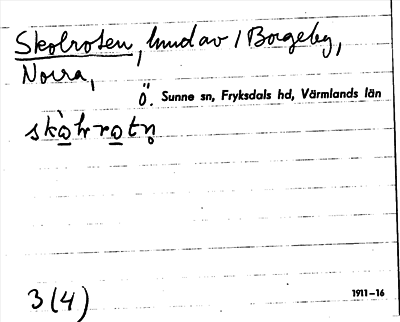 Skolroten, hmd av 1 Borgeby,
Norra,
Ö. Sunne sn, Fryksdals hd, Värmlands län
3(4)
1911-16